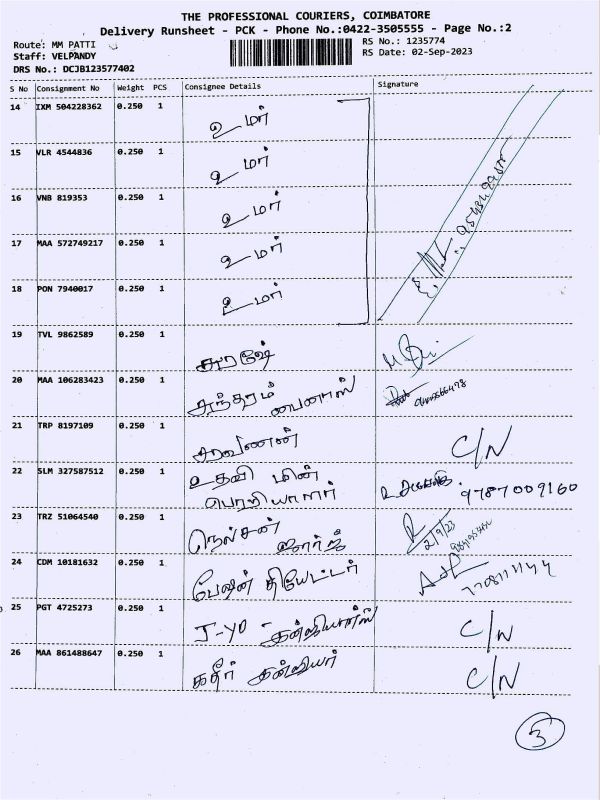 THE PROFESSIONAL COURIERS, COIMBATORE
Delivery Runsheet - PCK - Phone No.:0422-3505555 - Page No.:2
Route: MM PATTI
Staff: VELPANDY
DRS No.: DCJB123577402
RS No.: 1235774
RS Date: 02-Sep-2023
S No Consignment No Weight PCS Consignee Details Signature
14 IXM 504228362 0.250 1 உமர்
15 VLR 4544836 0.250 1 உமர்
16 VNB 819353 0.250 1 உமர்
17 MAA 572749217 0.250 1 உமர்
18 PON 7940017 0.250 1 உமர்
19 TVL 9862589 0.250 1 சுரேஷ்
20 MAA 106283423 0.250 1 சுந்தரம் பைனான்ஸ்
21 TRP 8197109 0.250 1 சரவணன் C/N
22 SLM 327587512 0.250 1 உதவி மின்
பொறியாளர் 9787009160
23 TRZ 51064540 0.250 1 நெல்சன் ஜார்ஜ் 2/9/23
24 CDM 10181632 0.250 1 தியேட்டர்
25 PGT 4725273 0.250 1 J-YO - C/N
26 MAA 861488647 0.250 1 கதிர் C/N
3